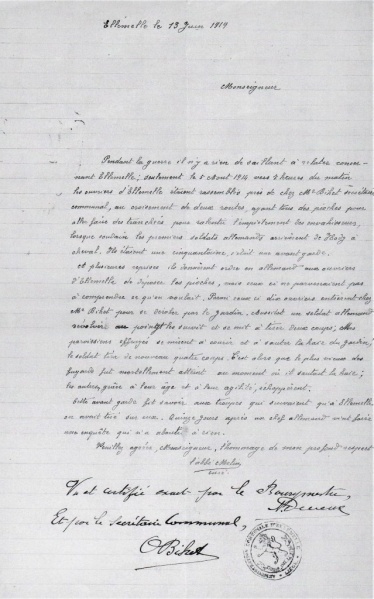 Ellemelle le 13 Juin 1919
Monseigneur
Pendant la guerre il n'y a rien de saillant à relater concer-
nant Ellemelle; seulement le 5 Aout 1914 vers 2 heures du matin
les ouvriers d'Ellemelle étaient rassemblés près de chez Mr Bihet secrétaire
communal, au croisement de deux routes, ayant tous des pioches pour
aller faire des tranchées pour ralentir l'empiètement des envahisseurs,
lorsque soudain les premiers soldats allemands arrivèrent de
cheval. Ils étaient une cinquantaine, c'était une avant garde.
A plusieurs reprises ils donnèrent ordre en allemand aux ouvriers
d'Ellemelle de déposer les pioches, mais ceux ci ne parvenaient pas
à comprendre ce qu'on voulait. Parmi ceux ci dix ouvriers entrèrent chez
Mr Bihet pour se cacher par le jardin. Aussitôt un soldat allemand
révolver au poing les suivit et se mit à tirer deux coups. Mes
paroissiens effrayés se mirent à courir et à sauter la haie du jardin;
le soldat tira de nouveau quatre coups. C'est alors que le plus vieux des
fuyards fut mortellement atteint au moment où il sautait la haie;
les autres, grâce à leur âge et à leur agilité, échappèrent.
Cette avant garde fit savoir aux troupes qui suivaient qu'à Ellemelle
on avait tiré sur eux. Quinze jours après un chef allemand vint faire
une enquête qui n'a abouti à rien.
Veuillez agréer, Monseigneur, l'hommage de mon profond respect
l'abbé
curé
Vu et certifié exact par le Bourgmestre,
Et par le secrétaire Communal,
O Bihet